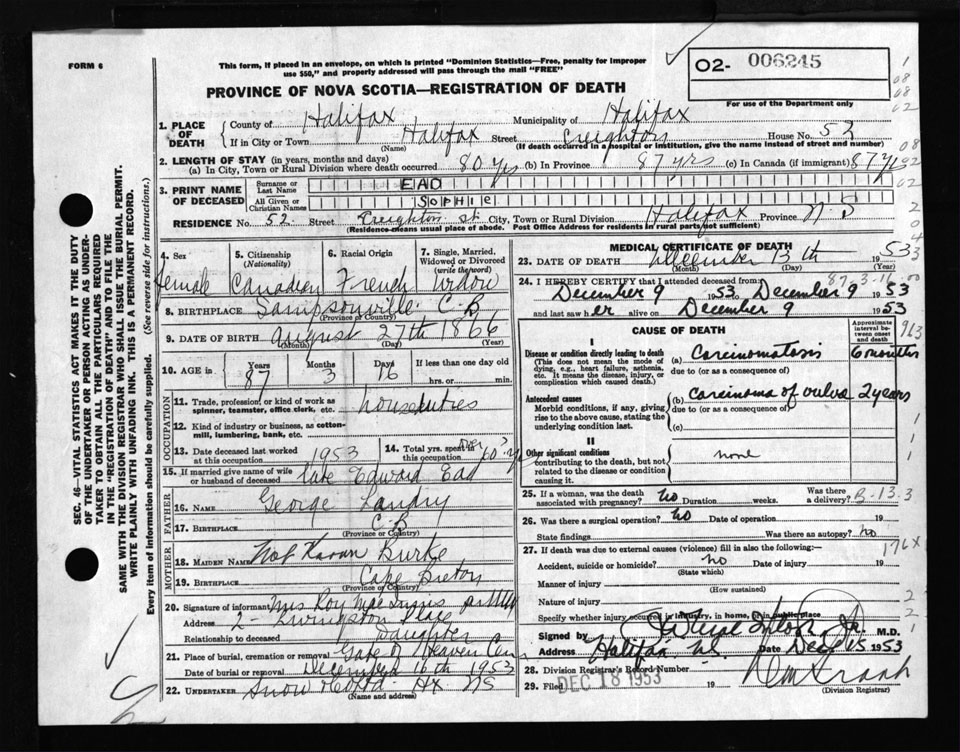 FORM 6
This form, if placed in an envelope, on which is printed "Dominion Statistics—Free, penalty for improper
use $50," and properly addressed will pass through the mail "FREE"
O2- 006245
For use of the Department only
PROVINCE OF NOVA SCOTIA—REGISTRATION OF DEATH
1. PLACE OF DEATH
County of Halifax Municipality of Halifax
If in City or Town Halifax Street Creighton House No. 52
(Name) (If death occurred in a hospital or institution, give the name instead of street and number)
2. LENGTH OF STAY (in years, months and days)
a) In City, Town or Rural Division where death occurred 80 yrs (b) In Province 87 yrs (c) In Canada (if immigrant) 87 yrs
3. PRINT NAME OF DECEASED
Surname or Last Name EAD
All Given or Christian Names SOPHIE
RESIDENCE No. 52 Street Creighton St. City, Town or Rural Division Halifax Province N.S
(Residence means usual place of abode. Post Office Address for residents in rural parts not sufficient)
4. Sex female
5. Citizenship (Nationality) Canadian
6. Racial Origin French
7. Single, Married, Widowed or Divorced (write the word) Widow
8. BIRTHPLACE Sampsonville C.B
(Province or Country)
9. DATE OF BIRTH August 27th 1866
(Month) (Day) (Year)
10. AGE in Years 87 Months 3 Days 16 If less than one day old
hrs. or min.
OCCUPATION
11. Trade, profession or kind of work as spinner, teamster, office clerk, etc. house duties
12. Kind of industry or business, as cotton-mill, lumbering, bank, etc.
13. Date deceased last worked at this occupation 1953
14. Total yrs. spent in this occupation over 60 y
15. If married give name of wife or husband of deceased late Edward Ead
FATHER
16. NAME George Landry
17. BIRTHPLACE C.B
(Province or Country)
MOTHER
18. MAIDEN NAME Not Known Burke
19. BIRTHPLACE Cape Breton
(Province or Country)
20. Signature of informant Mrs Roy MacInnis
Address 2 - Livingston Place
Relationship to deceased Daughter
21. Place of burial, cremation or removal Gate of Heaven Cem
Date of burial or removal December 16th 1953
22. UNDERTAKER Snow & Co Ltd Hx NS
(Name and address)
MEDICAL CERTIFICATE OF DEATH
23. DATE OF DEATH December 13th 1953
(Month) (Day) (Year)
24. I HEREBY CERTIFY that I attended deceased from
December 9 1953 to December 9 1953
and last saw her alive on December 9 1953
CAUSE OF DEATH
Approximate interval between onset and death
I
Disease or condition directly leading to death (a) Carcinomatosis 6 months
(This does not mean the mode of dying, e.g., heart failure, asthenia, etc. It means the disease, injury, or complication which caused death.)
due to (or as a consequence of)
Antecedent causes (b) Carcinoma of vulva 2 years
Morbid conditions, if any, giving rise to the above cause, stating the underlying condition last.
due to (or as a consequence of)
(c)
II
Other significant conditions none
contributing to the death, but not related to the disease or condition causing it.
25. If a woman, was the death associated with pregnancy? No Duration weeks. Was there a delivery?
B-13.3
26. Was there a surgical operation? No Date of operation 19
State findings Was there an autopsy? No
27. If death was due to external causes (violence) fill in also the following:—
Accident, suicide or homicide? No Date of injury 19
(State which)
176X
Manner of injury
(How sustained)
Nature of injury
Specify whether injury occurred in industry, in home, or in public place
Signed by M.D.
Address Halifax N.S. Date Dec 15 1953
28. Division Registrar's Record Number
29. Filed DEC 18 1953 19
(Division Registrar)
SEC. 46—VITAL STATISTICS ACT MAKES IT THE DUTY
OF THE UNDERTAKER OR PERSON ACTING AS UNDERTAKER
TO OBTAIN ALL THE PARTICULARS REQUIRED
IN THE "REGISTRATION OF DEATH" AND TO FILE THE
SAME WITH THE DIVISION REGISTRAR WHO SHALL ISSUE THE BURIAL PERMIT.
WRITE PLAINLY WITH UNFADING INK. THIS IS A PERMANENT RECORD.
Every item of information should be carefully supplied. (See reverse side for instructions.)